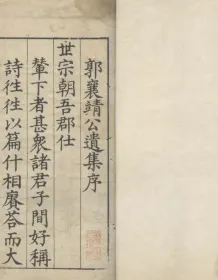 郭襄靖公遺集序
世宗朝吾郡仕
輦下者甚衆諸君子間好稱
詩往往以篇什相賡荅而大